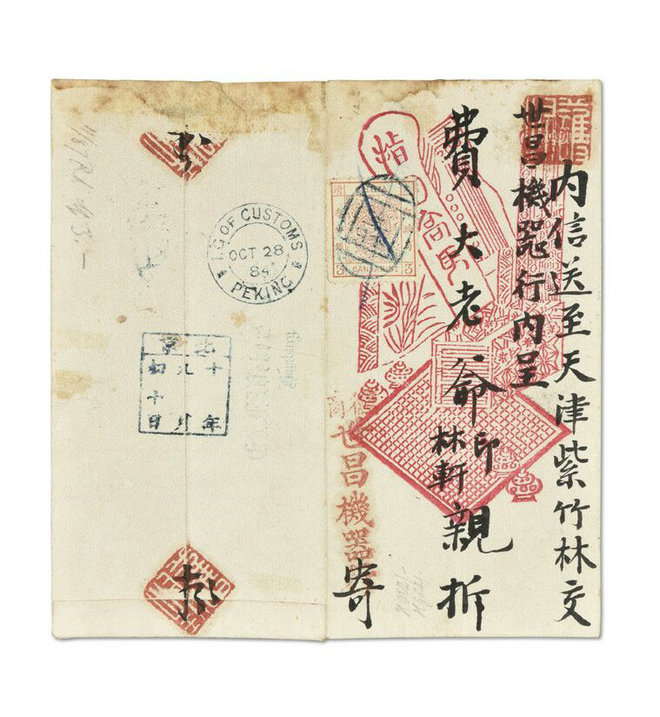 内信送至天津紫竹林交
世昌機器行内呈
費大老爺印林軒親拆
世昌機器
寄
3 CANDARINS 3
I.G. OF CUSTOMS
OCT 28
84
PEKING
北京
十年
九月
初十日